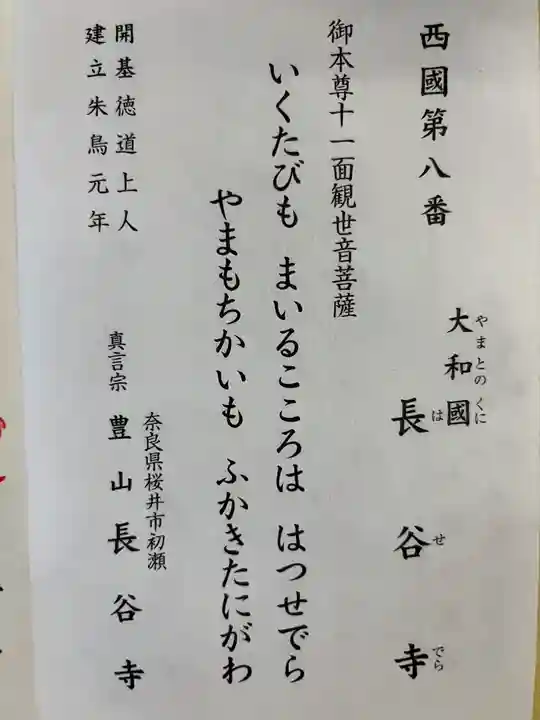 西國第八番
大和國
やまとの くに
長谷寺
は せ でら
御本尊十一面観世音菩薩
いくたびも まいるこころは はつせでら
やまもちかいも ふかきたにがわ
開基徳道上人
建立朱鳥元年
奈良県桜井市初瀬
真言宗 豊山長谷寺